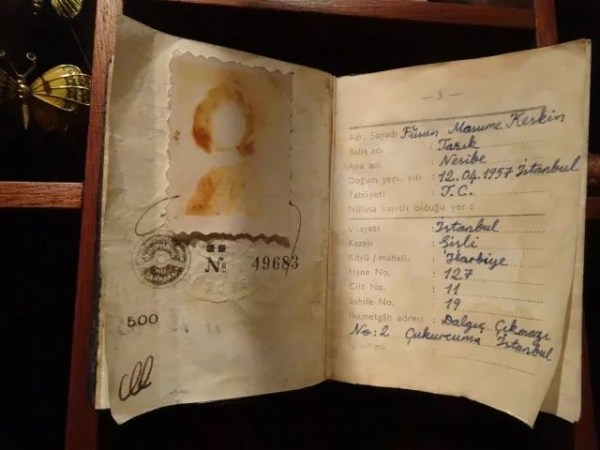 No 49683
500
— 3 —
Adı, Soyadı Füsun Masume Keskin
Baba adı : Tarık
Ana adı : Nesibe
Doğum yeri, yılı : 12.04.1957 İstanbul
Tabiiyeti : T.C.
Nüfusa kayıtlı olduğu yer :
Vilayeti : İstanbul
Kazası : Şişli
Köyü / mahall. : Harbiye
Hane No. : 127
Cilt No. : 11
Sahife No. : 19
İkametgâh adresi : Dalgıç Çıkmazı
No: 2 Çukurcuma İstanbul